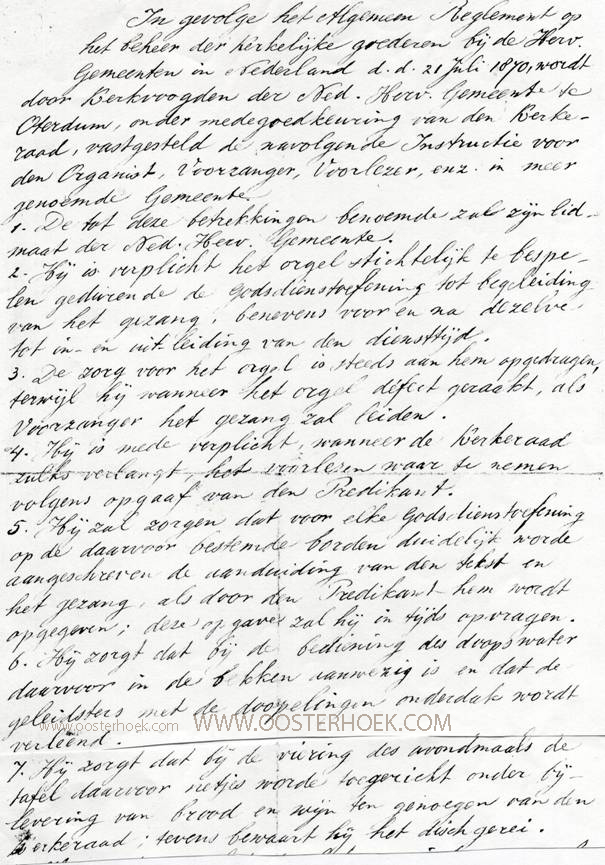 In gevolge het Algemeen Reglement op
het beheer der kerkelijke goederen bij de Herv.
Gemeenten in Nederland d.d. 21 Juli 1870, wordt
door Kerkvoogden der Ned. Herv. Gemeente te
Oterdum, onder medegoedkeuring van den Kerke-
raad, vastgesteld de navolgende Instructie voor
den Organist, Voorzanger, Voorlezer, enz. in meer
genoemde Gemeente.
1. De tot deze betrekkingen benoemde zal zijn lid-
maat der Ned. Herv. Gemeente.
2. Hij is verplicht het orgel stichtelijk te bespe-
len gedurende de Godsdienstoefening tot begeleiding
van het gezang, benevens voor en na dezelve
tot in- en uitleiding van den diensttijd.
3. De zorg voor het orgel is steeds aan hem opgedragen,
terwijl hij wanneer het orgel defect geraakt, als
Voorzanger het gezang zal leiden.
4. Hij is mede verplicht, wanneer de Kerkeraad
zulks verlangt, het voorlezen waar te nemen
volgens opgaaf van den Predikant.
5. Hij zal zorgen dat voor elke Godsdienstoefening
op de daarvoor bestemde borden duidelijk worde
aangeschreven de aanduiding van den tekst en
het gezang, als door den Predikant hem wordt
opgegeven; deze opgave zal hij in tijds opvragen.
6. Hij zorgt dat bij de bediening des doops water
daarvoor in de bekken aanwezig is en dat de
geleidsters met de doopelingen onderdak wordt
www.oosterhoek.com WWW.OOSTERHOEK.COM
verleend.
7. Hij zorgt dat bij de viering des avondmaals de
tafel daarvoor netjes worde toegericht onder bij-
levering van brood en wijn ten genoegen van den
Kerkeraad; tevens bewaart hij het dischgerei.